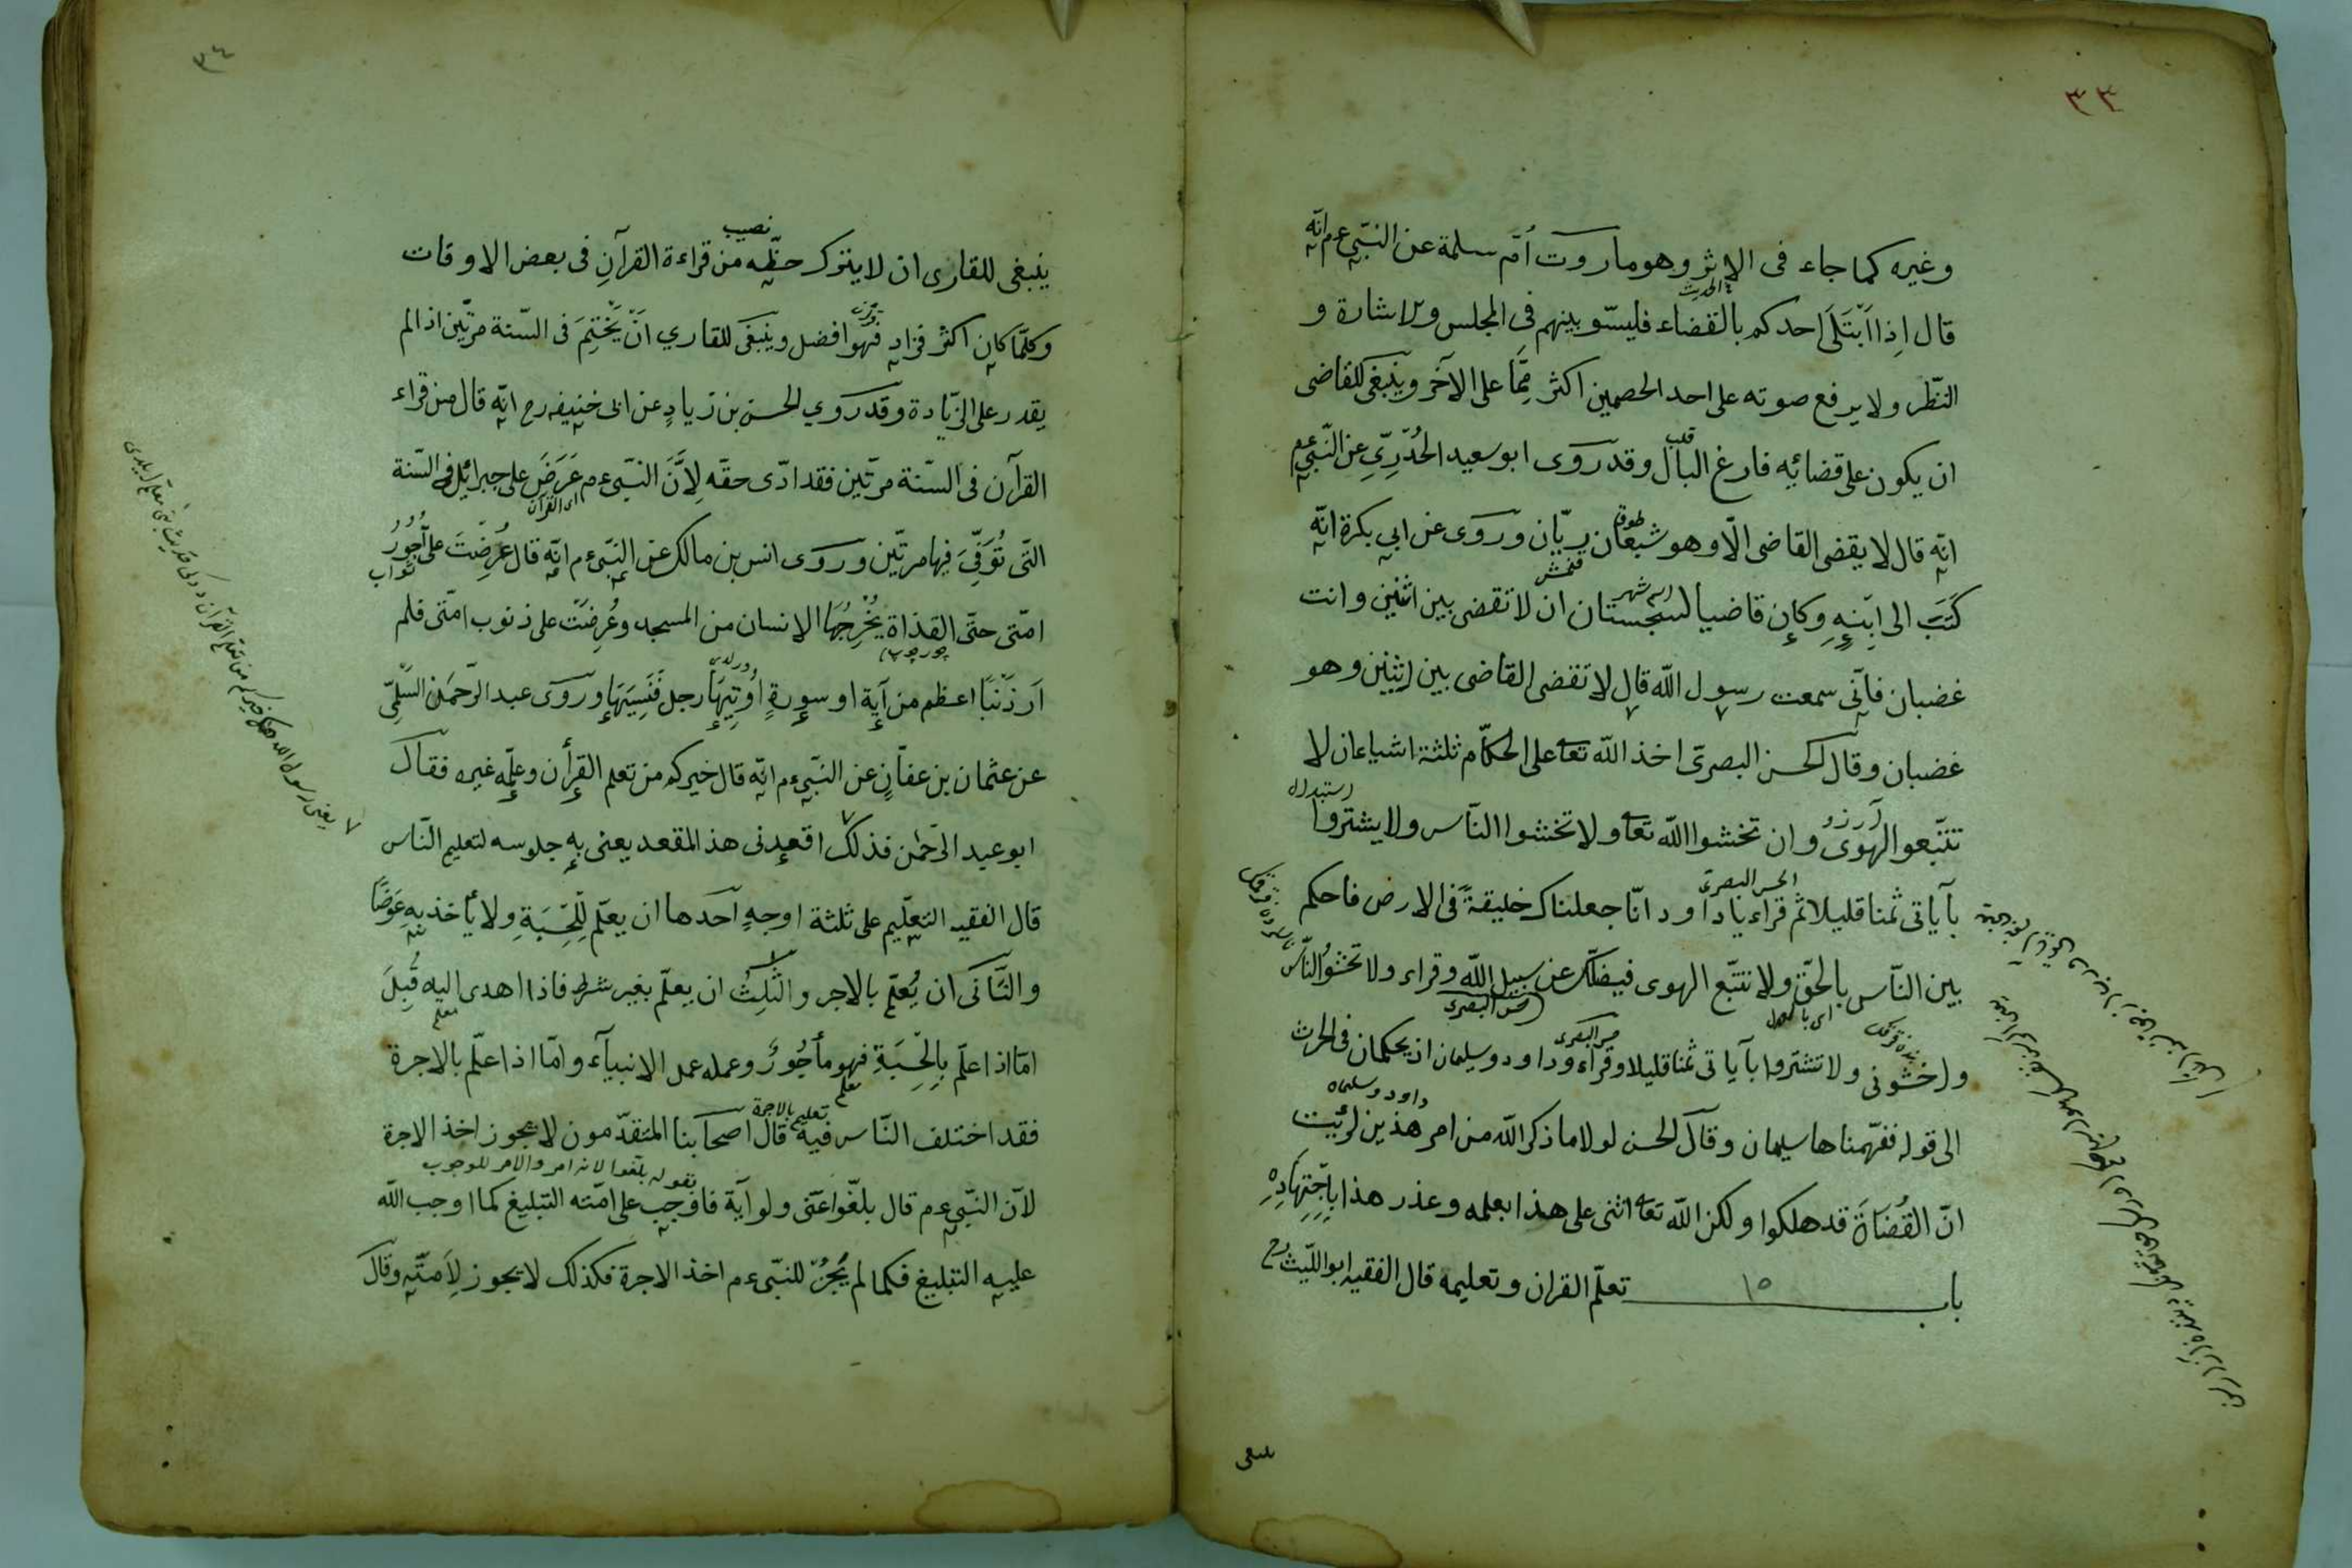 ٣٣
وغيره كما جاء فى الاثر وهو ما روت أمّ سلمة عن النبّى عم انّه
الحديث
قال اِذا اَبْتَلَى احدكم بالقضاء فليسّو بينهم فى المجلس والاشارة و
النّظر ولا يرفع صوته على احد الخصمين اكثر مِمَّا على الآخر وينبغى للقاضى
قلب
ان يكون على قضائه فارغ البال وقد روى ابو سعيد الخُدْرِىِّ عن النّبىّ عم
انّه قال لا يقضى القاضى الّا وهو شبعان ريّان وروى عن ابى بكرة انّه
كَتَبَ الى اِبْنِهِ وكان قاضيا لسجستان ان لا تقضى بين اثنين وانت
غضبان فانّى سمعت رسول الله قال لا تقضى القاضى بين اثنين وهو
غضبان وقال الحسن البصرىّ اخذ الله تعا على الحكّام ثلثة اشياء ان لا
آرزو
تتّبعو الهوى وان تخشوا الله تعا ولا تخشوا النّاس ولا يشتروا
الحسن البصرى
بآياتى ثمنا قليلا ثم قراء يا داود انّا جعلناك خليفةً فى الارض فاحكم
بين النّاس بالحقّ ولا تتّبع الهوى فيضلّك عن سبيل الله وقراء ولا تخشوُا النّاس
حسن البصرى
واخشونى ولا تشتروا بآياتى ثمنا قليلا وقراء وداود وسليمان اذ يحكمان فى الحرث
داود وسليمان
الى قوله ففهّمناها سليمان وقال الحسن لولا ما ذكر الله من امر هذين لرئيت
انّ القُضَاةَ قد هلكوا ولكن الله تعا اثنى على هذا بعلمه وعذر هذا بِاجْتِهَادِهِ
باب ١٥ تعلّم القران وتعليمه قال الفقيه ابو اللّيث رح
ينبغى
٣٤
نصيب
ينبغى للقارى ان لا يترك حظّه من قراءة القرآنِ فى بعض الاوقات
وكلّما كان اكثر فزاد فهو افضل وينبغى للقاري اَنْ يَخْتِمَ فى السّنة مرّتين اذا لم
يقدر على الزّيادة وقد روي الحسن بن زيادٍ عن ابى حنيفه رح انّه قال من قراء
القرآن فى السّنة مرّتين فقد ادّى حقّه لِاَنَّ النبّى عم عَرَضَ على جبرائل فى السّنة
اى القران
التّى تُوَفِّىَ فيها مرتّين وروى انس بن مالك عن النبّى عم انّه قال عُرِضَتْ على اُجُورُ
ثواب
امّتى حتّى القذاة يُخْرِجُهَا الانسان من المسجد وعُرِضَتْ على ذنوب امّتى فلم
اَرَ ذَنْبًا اعظم من آية او سورةٍ اُوتِيَهَا رجل فَنَسِيَهَا وروى عبد الرّحمن السُّلمىّ
عن عثمان بن عفّانٍ عن النبّى عم انّه قال خيركم من تعلم القرأن وعلّمه غيره فقال
ابو عبد الرّحمن فذلك اقعدنى هذ المقعد يعنى به جلوسه لتعليم النّاس
قال الفقيه التعليم على ثلثة اوجهٍ احدها ان يعلّم لِلْحِسْبَةِ ولا يأخذ بِهِ عِوَضًا
والثّانى ان يُعلّم بالاجر والثّلِثُ ان يعلّم بغير شرط فاذا اهدى اليه قُبِلَ
معلم
امّا اذا علّم بِالْحِسْبَةِ فهو مأجُورٌ وعمله عمل الانبيآء وامّا اذا علّم بالاجرة
معلم
تعليم بالاجرة
فقد اختلف النّاس فيه قال اصحابنا المتقدّمون لا يجوز اخذ الاجرة
بقوله بلّغوا لانه امر والامر للوجوب
لانّ النبّى عم قال بلّغوا عنّى ولو آية فاوجب على امّته التبليغ كما اوجب الله
عليه التبليغ فكما لم يَجُزْ للنبّى عم اخذ الاجرة فكذلك لا يجوز لِاَمتّه وقال